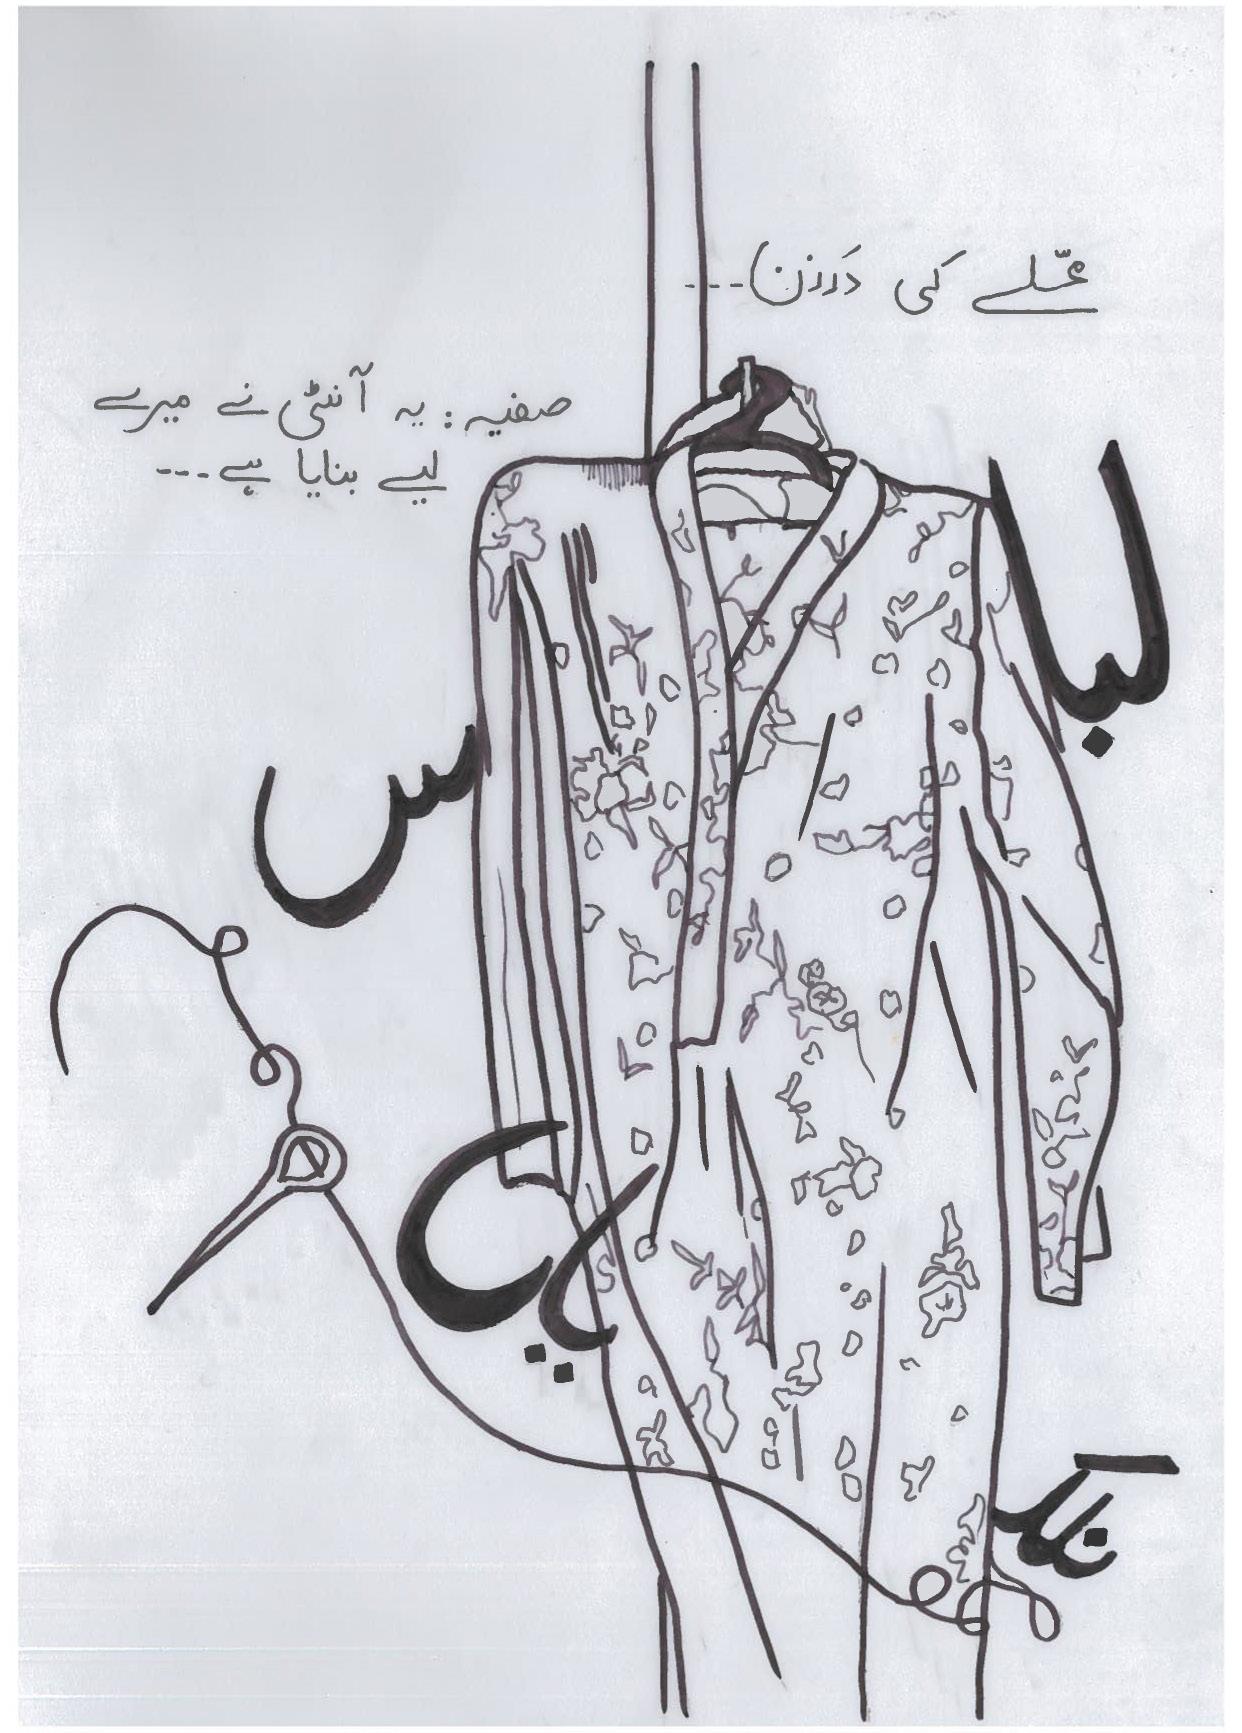 محّلے کی دَرزن---
صفیہ: یہ آنٹی نے میرے
لیے بنایا ہے---
لباس